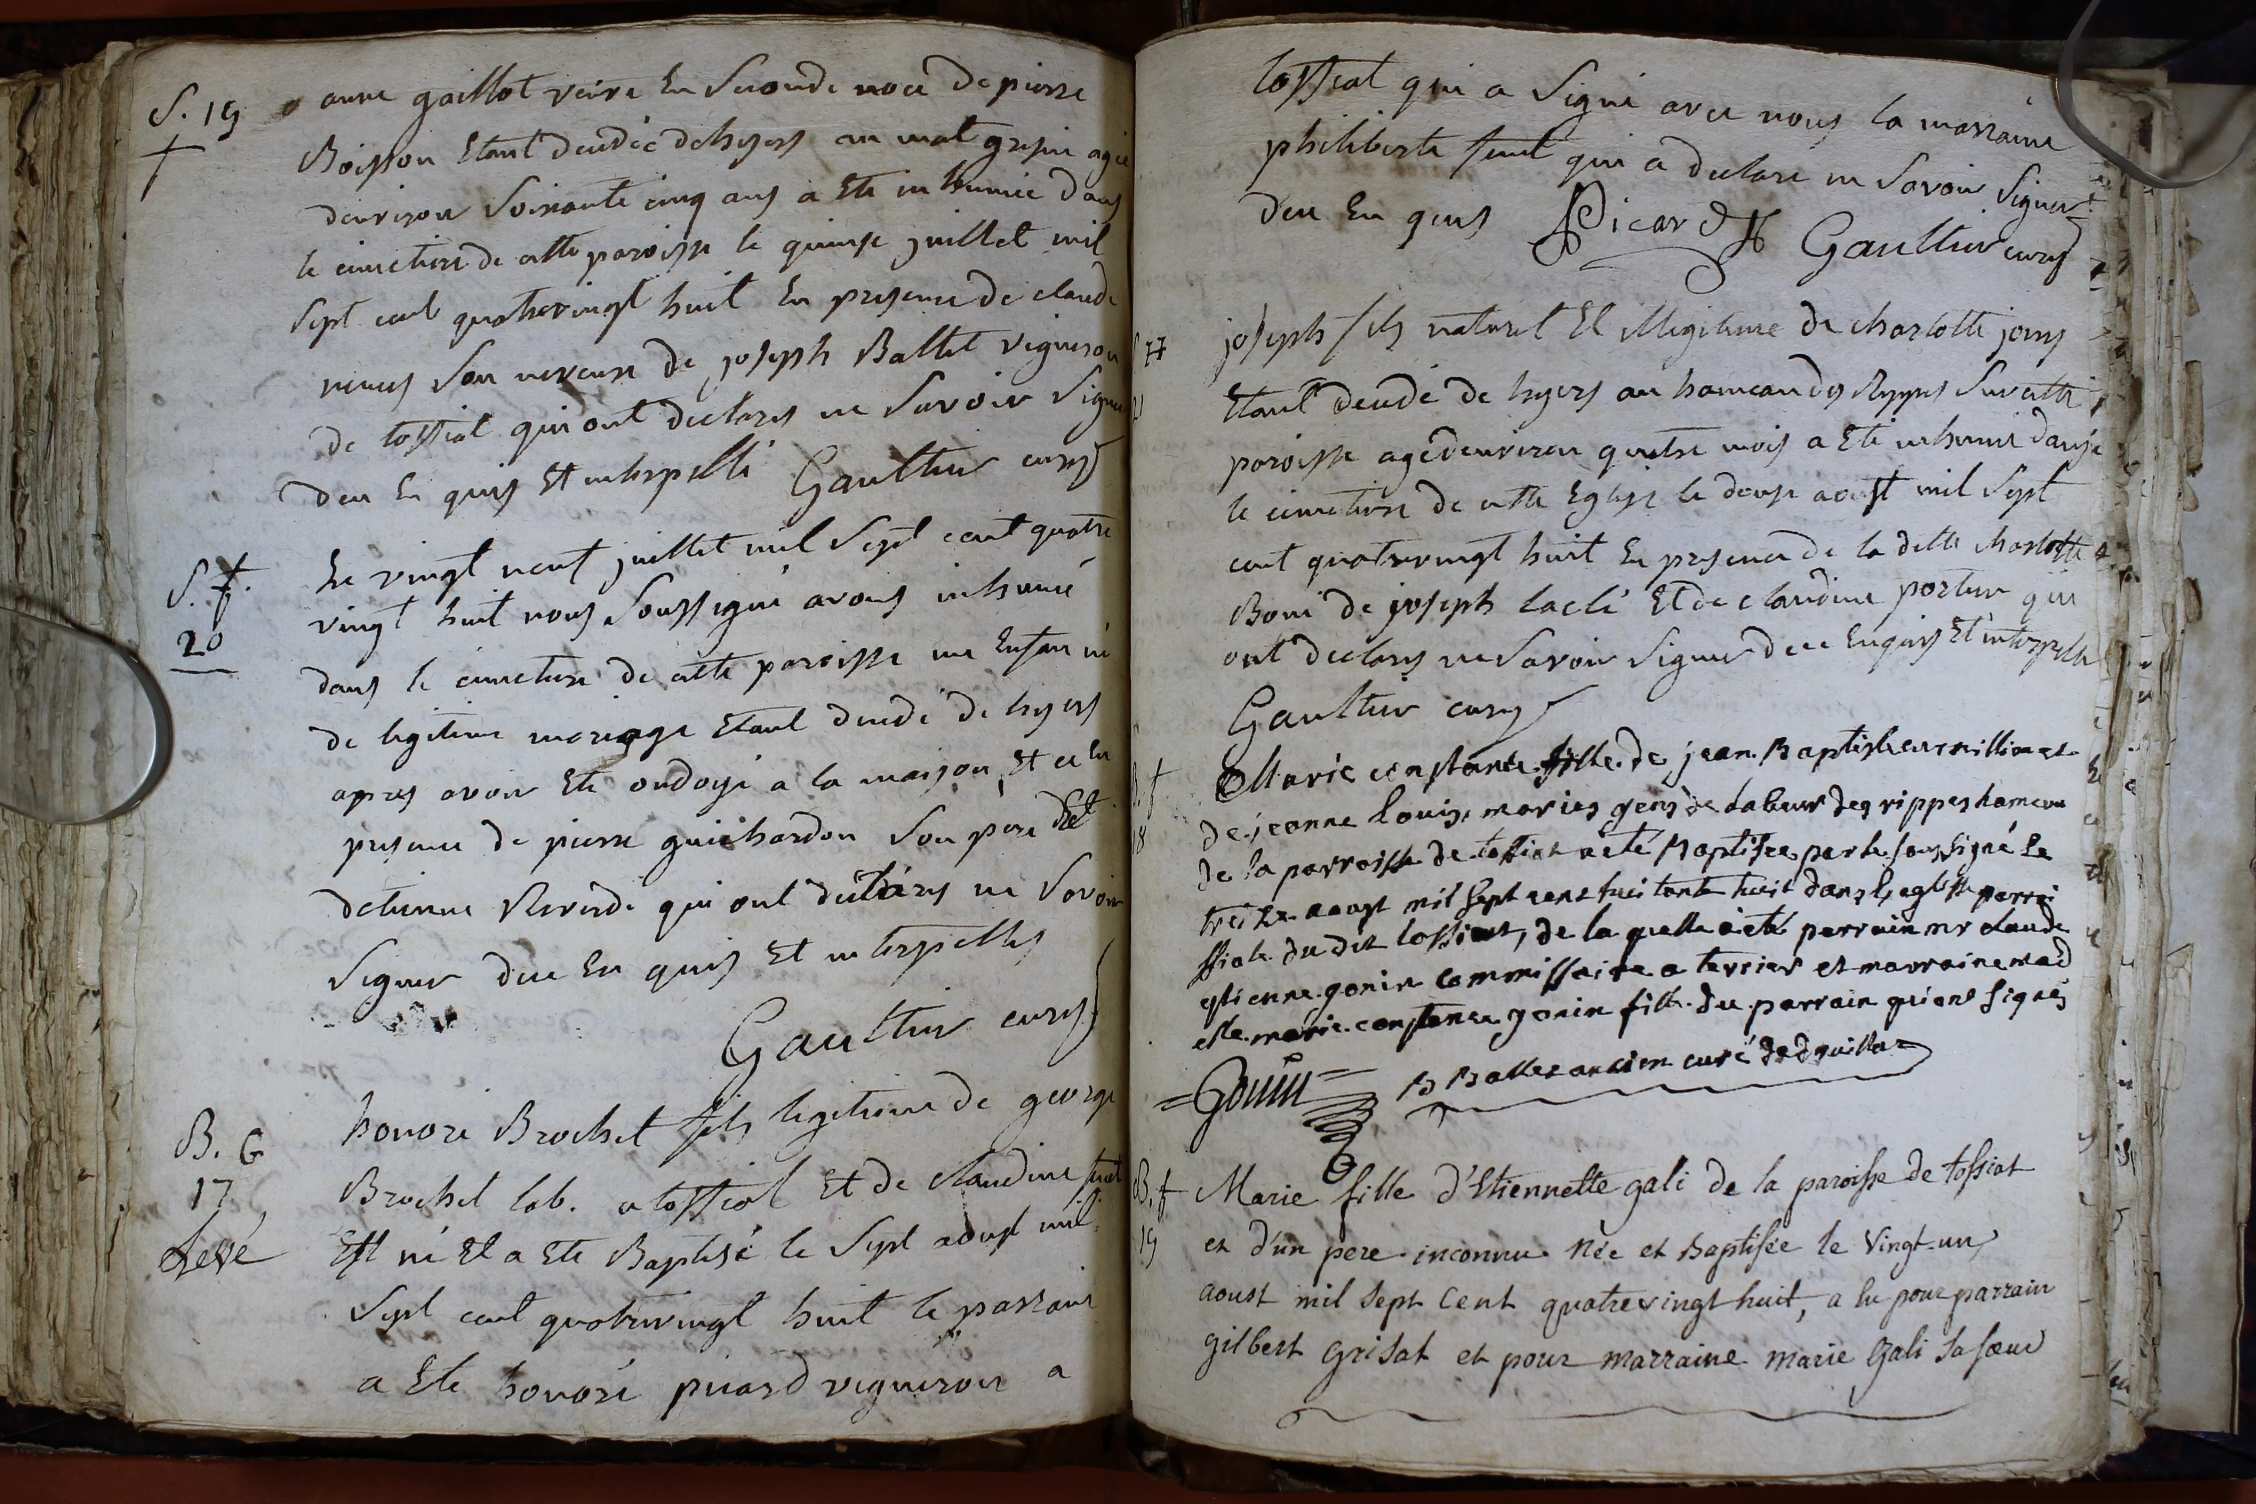 S. 19
anne gaillot veive En Seconde noce De pierre
Boisson Etant decedée dehyers au mat grisin agée
denviron Soixante cinq ans a Ete inhumée Dans
le cimetiere de cette paroisse le quinse juillet mil
Sept cent quatrevingt huit En presence de claude
neveu de joseph Ballet vigneron
de tossiat qui ont declares ne Savoir Signer
deu En quis Et interpellé Gaultier curé
S. f.
20
Le vingt neuf juillet mil Sept cent quatre
vingt huit nous Soussigné avons inhumé
dans le cimetiere de cette paroisse un Enfant né
de legitime mariage Etant decedé de hyers
apres avoir Ete ondoyé a la maison Et ce En
presence de pierre guichardon Son pere Et
detienne Reverdi qui ont declares ne Savoir
Signer deu En quis Et interpelles
Gaultier curé
B. G
17
Levé
honoré Brochet fils legitime de george
Brochet lab. a tossiat Et de claudine
Est né Et a Ete Baptisé le Sept adust mil
Sept cent quatrevingt huit le parrain
a Ete honoré picard vigneron a
tossiat qui a Signé avec nous la marraine
philiberte qui a declaré ne Savoir Signer
deu En quis Picard Gaultier curé
17
joseph fils naturel Et illegitime de charlotte
Etant decedé de hyers au hameau des Ryppes Sur cette
paroisse agé denviron quatre mois a Eté inhumé dans
le cimetiere de cette Eglise le douse aoust mil Sept
cent quatrevingt huit En presence de la dette charlotte
Boni de joseph laclé Et de claudine portier qui
ont declares ne Savoir Signer deee Enquis Et interpelle
Gaultier curé
B. f
18
Marie constance fille de jean Baptiste
de jeanne louise maries gens de labeur des rippes hameau
de la parroisse de tossiat a eté Baptisée par le soussigné le
treize aoust mil sept cent huitante huit dans l'eglisse parroi
ssiale du dit tossiat, de la quelle a eté parrain mr claude
estienne gonin commissaire a terrier et marraine mad
elle marie constance gonin fille du parrain qui ont signés
Gonin B Ballet ancien curé de druillat
B. f
19
Marie fille d'Etiennette gali de la paroisse de tossiat
et d'un pere inconnu née et Baptisée le Vingt-un
aoust mil sept Cent quatrevingt huit, a Eu pour parrain
gilbert grisat et pour marraine marie gali sa sœur